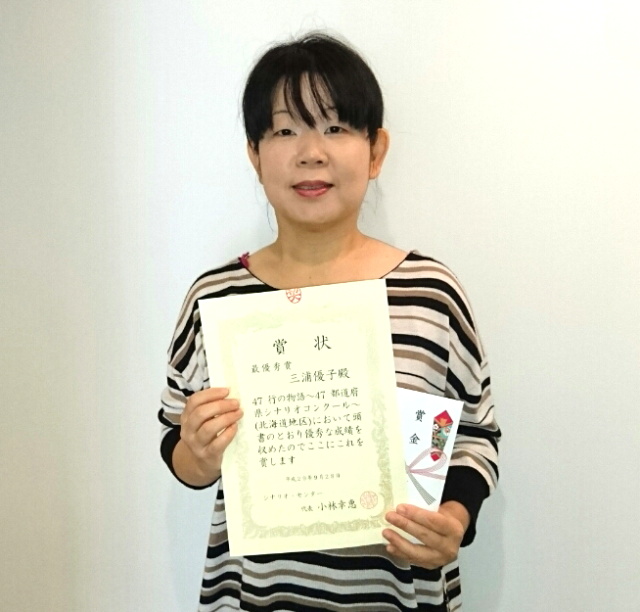 賞状
最優秀賞
三浦優子殿
47 行の物語~47 都道府
県シナリオコンクール~
(北海道地区)において頭
書のとおり優秀な成績を
収めたのでここにこれを
賞します
シナリオ・センター
代表 小林幸恵
賞金